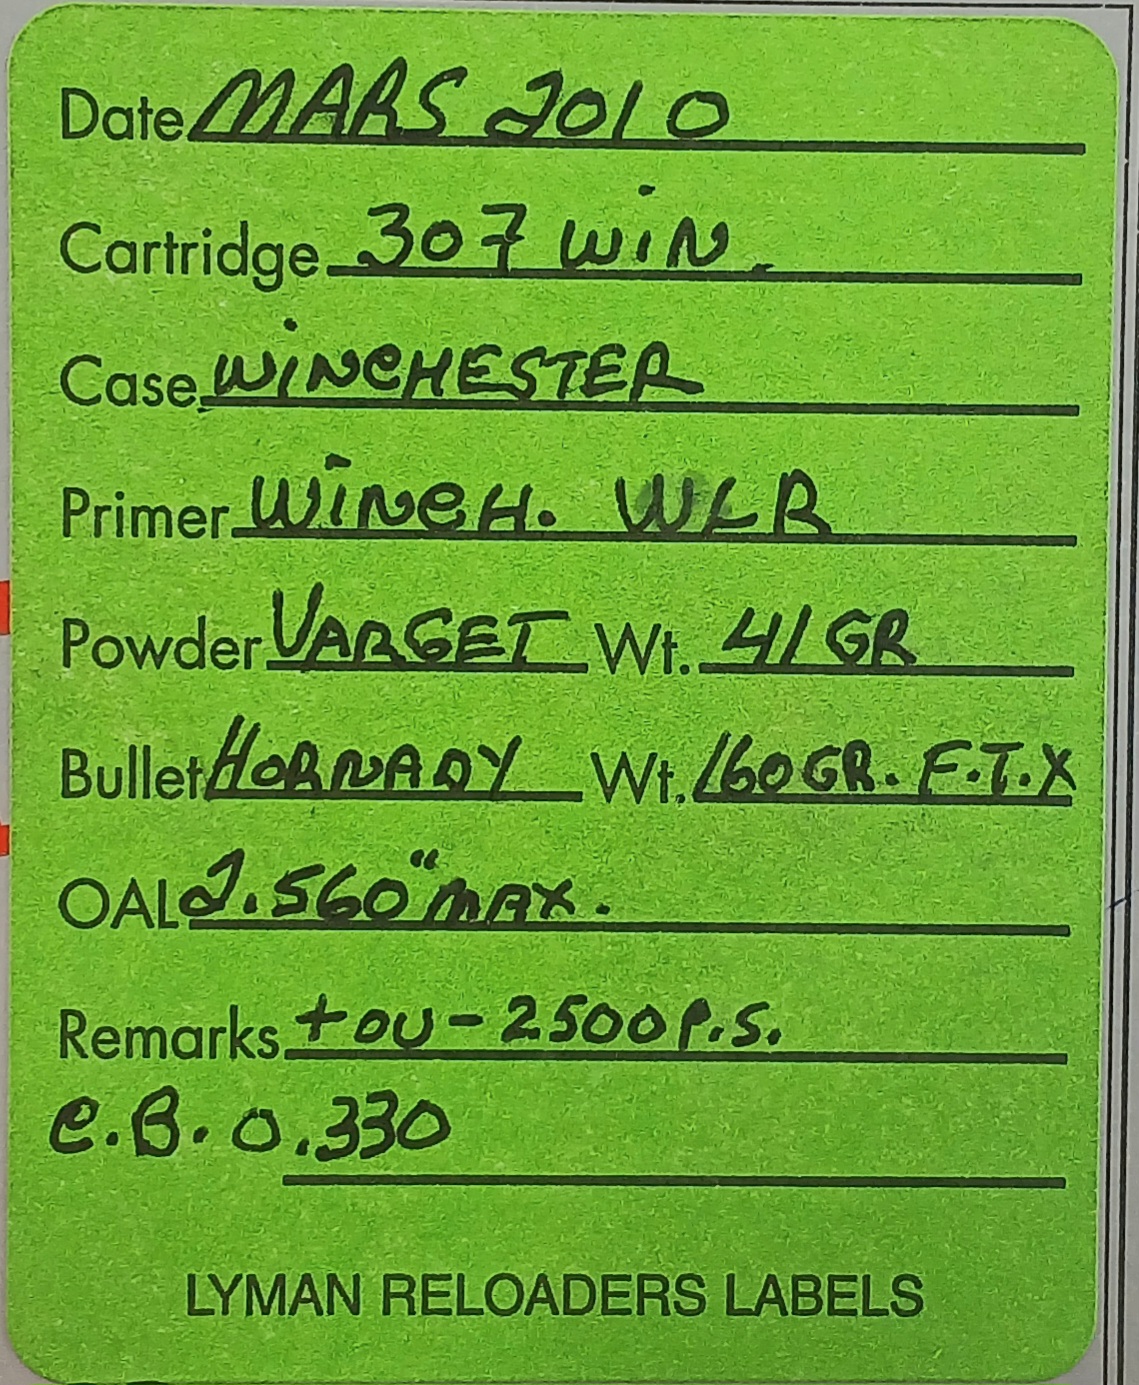 Date MARS 2010
Cartridge 307 WiN.
Case WiNCHESTER
Primer WiNCH. WLR
Powder VARGET Wt. 41 GR
Bullet HORNADY Wt. 160 GR. F.T.X
OAL 2.560" MAX.
Remarks + OU - 2500 P.S.
C.B. 0.330
LYMAN RELOADERS LABELS